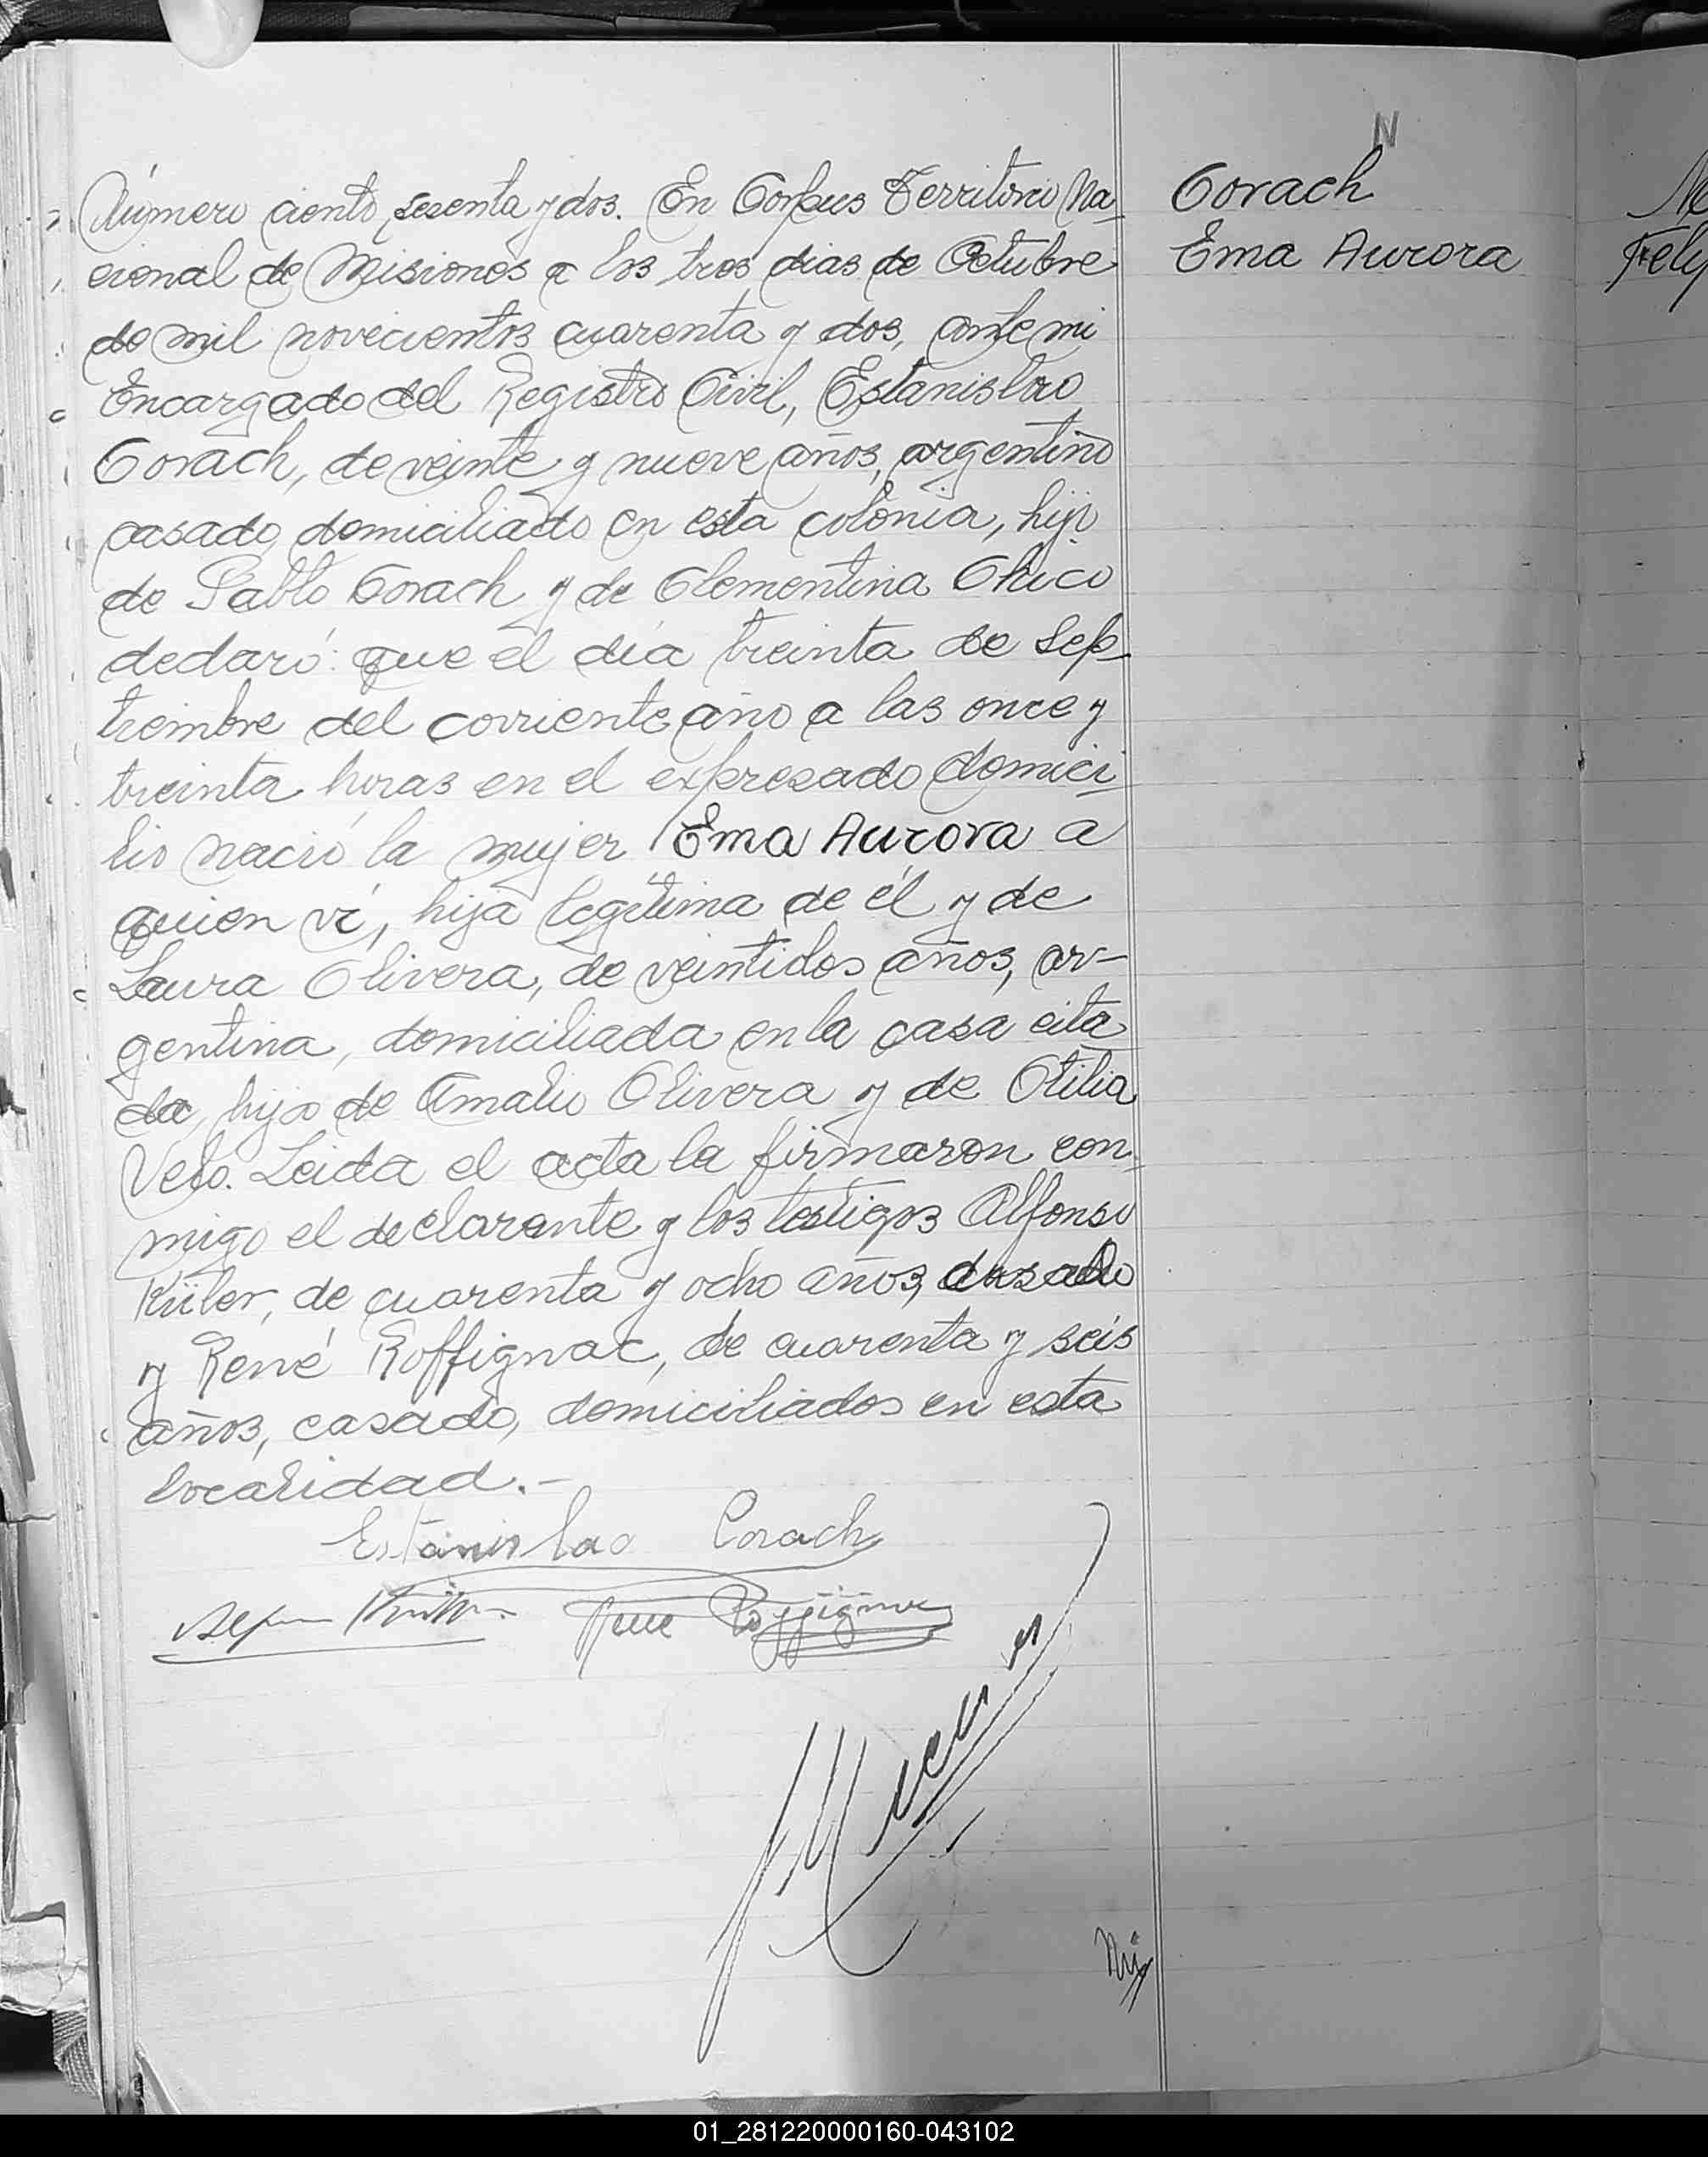 N
Número ciento sesenta y dos. En Corpus Territorio Na-
cional de Misiones a los tres dias de Octubre
de mil novecientos cuarenta y dos, ante mi
Encargado del Registro Civil, Estanislao
Corach, de veinte y nueve años, argentino
casado, domiciliado en esta colonia, hijo
de Pablo Corach y de Clementina Chico
declaró: que el día treinta de Sep-
tiembre del corriente año a las once y
treinta horas en el expresado domici-
lio nació la mujer Ema Aurora a
quien ví, hija legítima de él y de
Laura Olivera, de veintidos años, ar-
gentina, domiciliada en la casa cita
da, hija de Amalio Olivera y de Otilia
Velo. Leida el acta la firmaron con-
migo el declarante y los testigos Alfonso
Küler, de cuarenta y ocho años, casado
y René Roffignac, de cuarenta y seis
años, casado, domiciliados en esta
localidad.-
Estanislao Corach
Rene Roffignac
Corach
Ema Aurora
01_281220000160-043102